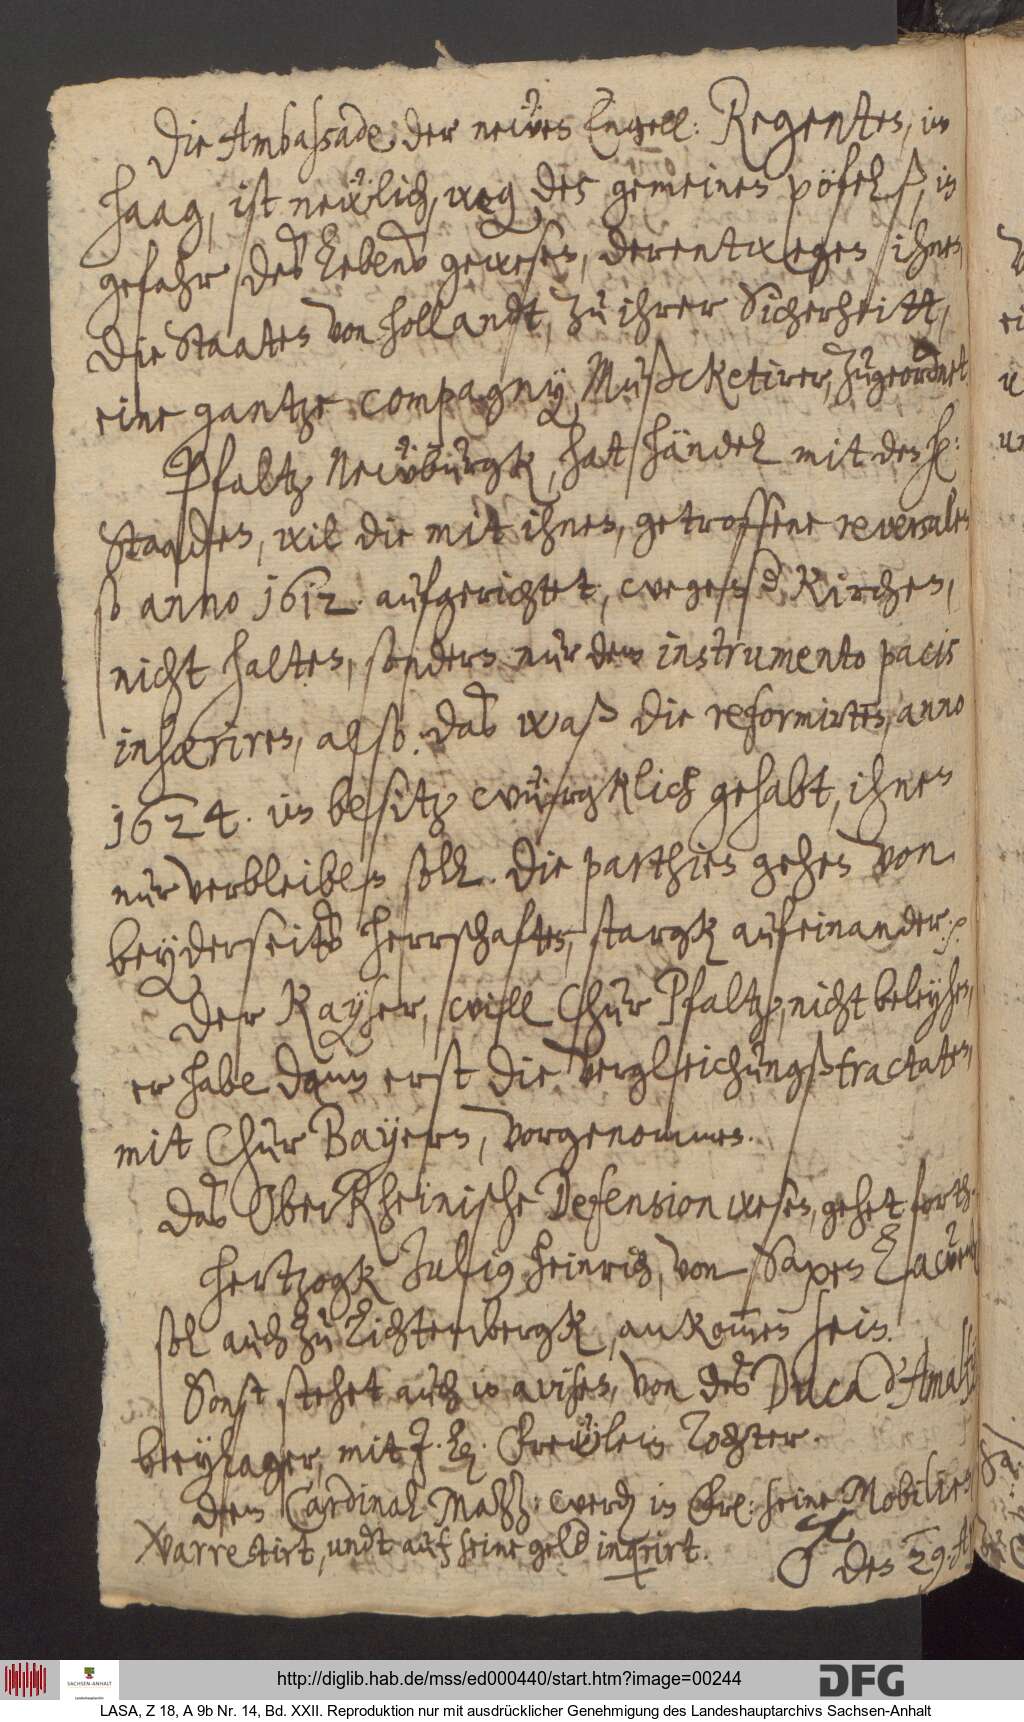 Die Ambassade, der neẅen Engell: Regenten, im
Haag, ist newlich, weg. des gemeinen pöfelß, in
gefahr des Lebens gewesen, derentwegen ihnen
die Staaten von Hollandt, zu ihrer Sicherheitt,
eine gantze compagny Mußcketirer, zugeordnet.
Pfaltz Neẅburgk, hat händel mit den H:
Staaden, wil die mit ihnen, getroffene reversalen
so anno 1612. aufgerichtet, wegen d. Kirchen,
nicht halten, sondern nur dem instrumento pacis
inhæriren, also das waß die reformirten, anno
1624. im besitz würgklich gehabt, ihnen
nur verbleiben soll. Die parthien gehen von
beyderseits herrschaften, stargk aufeinander.
Der Kayser, will Chur Pfaltz, nicht beleyhen,
er habe dann erst die vergleichungßtractaten,
mit Chur Bayern, vorgenommen.
Das Ober Rheinische Defension wesen, gehet forth.
Hertzogk Julius Heinrich, von Saxen Lauen
sol auch zu Lichtenbergk, ankom̄en sein.
Sonst stehet auch in avisen, von des Duca d'Amalfi
beylager, mit J. L. Freẅlein Tochter.
dem Cardinal Mazz: werden in Fr: seine Mobilien
verarrestirt, undt auf seine geld inqrirt.
den 29.